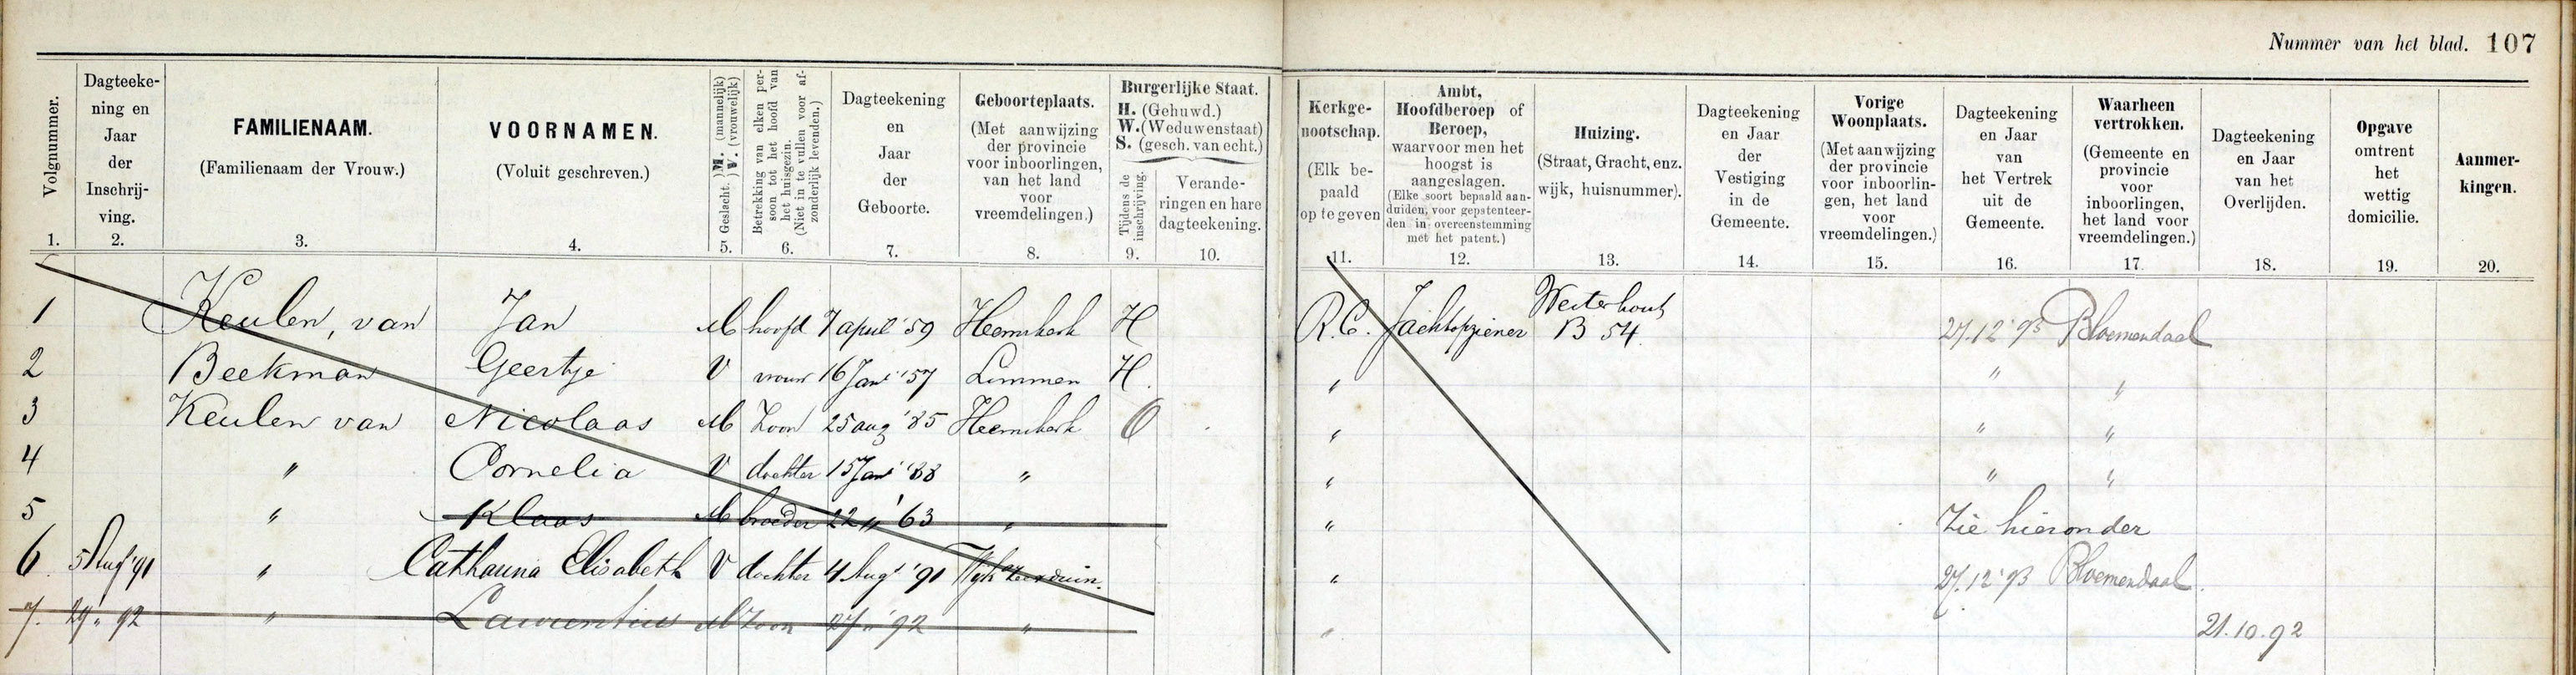 Nummer van het blad. 107
Volgnummer. 1.
Dagteeke-
ning en
Jaar
der
Inschrij-
ving.
2.
FAMILIENAAM.
(Familienaam der Vrouw.)
3.
VOORNAMEN.
(Voluit geschreven.)
4.
Geslacht. M. (mannelijk)
V. (vrouwelijk)
5.
Betrekking van elken per-
soon tot het hoofd van
het huisgezin.
(Niet in te vullen voor af-
zonderlijk levenden.)
6.
Dagteekening
en
Jaar
der
Geboorte.
7.
Geboorteplaats.
(Met aanwijzing
der provincie
voor inboorlingen,
van het land
voor
vreemdelingen.)
8.
Burgerlijke Staat.
H. (Gehuwd.)
W. (Weduwenstaat)
S. (gesch. van echt.)
Tijdens de
inschrijving.
9.
Verande-
ringen en hare
dagteekening.
10.
Kerkge-
nootschap.
(Elk be-
paald
op te geven
11.
Ambt,
Hoofdberoep of
Beroep,
waarvoor men het
hoogst is
aangeslagen.
(Elke soort bepaald aan-
duiden, voor gepatenteer-
den in overeenstemming
met het patent.)
12.
Huizing.
(Straat, Gracht, enz.
wijk, huisnummer).
13.
Dagteekening
en Jaar
der
Vestiging
in de
Gemeente.
14.
Vorige
Woonplaats.
(Met aanwijzing
der provincie
voor inboorlin-
gen, het land
voor
vreemdelingen.)
15.
Dagteekening
en Jaar
van
het Vertrek
uit de
Gemeente.
16.
Waarheen
vertrokken.
(Gemeente en
provincie
voor
inboorlingen,
het land voor
vreemdelingen.)
17.
Dagteekening
en Jaar
van het
Overlijden.
18.
Opgave
omtrent
het
wettig
domicilie.
19.
Aanmer-
kingen.
20.
Westerhout
1 Keulen, van Jan M hoofd 7 april '59 Heemskerk H R.C. Jachtopziener B 54. 27.12'93 Bloemendaal
2 Beekman Geertje V vrouw 16 Jan '57 Limmen H. " " "
3 Keulen van Nicolaas M Zoon 25 aug '85 Heemskerk O " " "
4 " Cornelia V dochter 15 Jan '88 " " " "
5 " Klaas M broeder 22 " '63 " " Zie hieronder
6. 5 Aug '91 " Catharina Elisabeth V dochter 4 Aug '91 Wijk aan Zee en Duin. " 27.12'93 Bloemendaal.
7. 29 " 92 " Laurentius M Zoon 27 " '92 " " 21.10.92